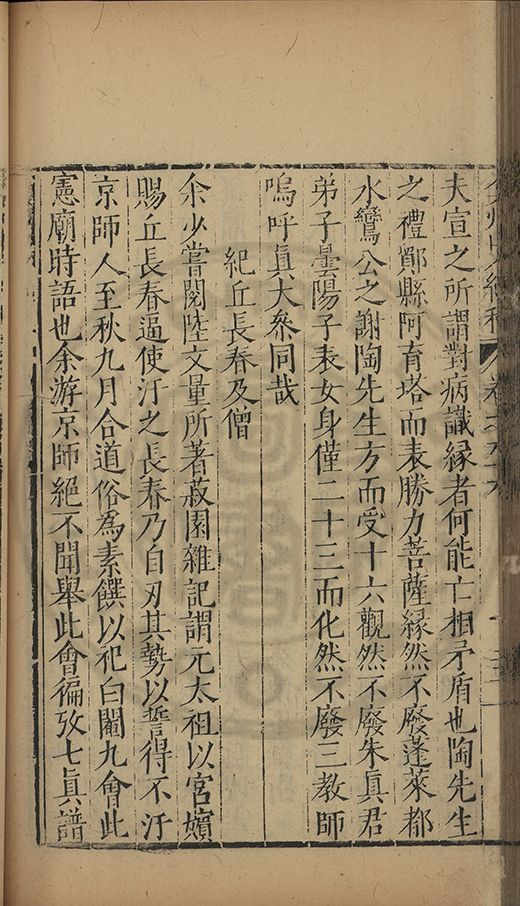 夫宣之所謂對病識緣者何能亡相矛盾也陶先生
之禮鄮縣阿育塔而表勝力菩薩緣然不廢蓬萊都
水鸞公之謝陶先生方而受十六觀然不廢朱眞君
弟子曇陽子表女身僅二十三而化然不廢三教師
嗚呼眞大叅同哉
紀丘長春及僧
余少嘗閱陸文量所著菽園雜記謂元太祖以宮嬪
賜丘長春逼使汙之長春乃自刃其勢以誓得不汙
京師人至秋九月合道俗為素饌以祀曰閹九會此
憲廟時語也余游京師絕不聞舉此會徧攷七眞譜